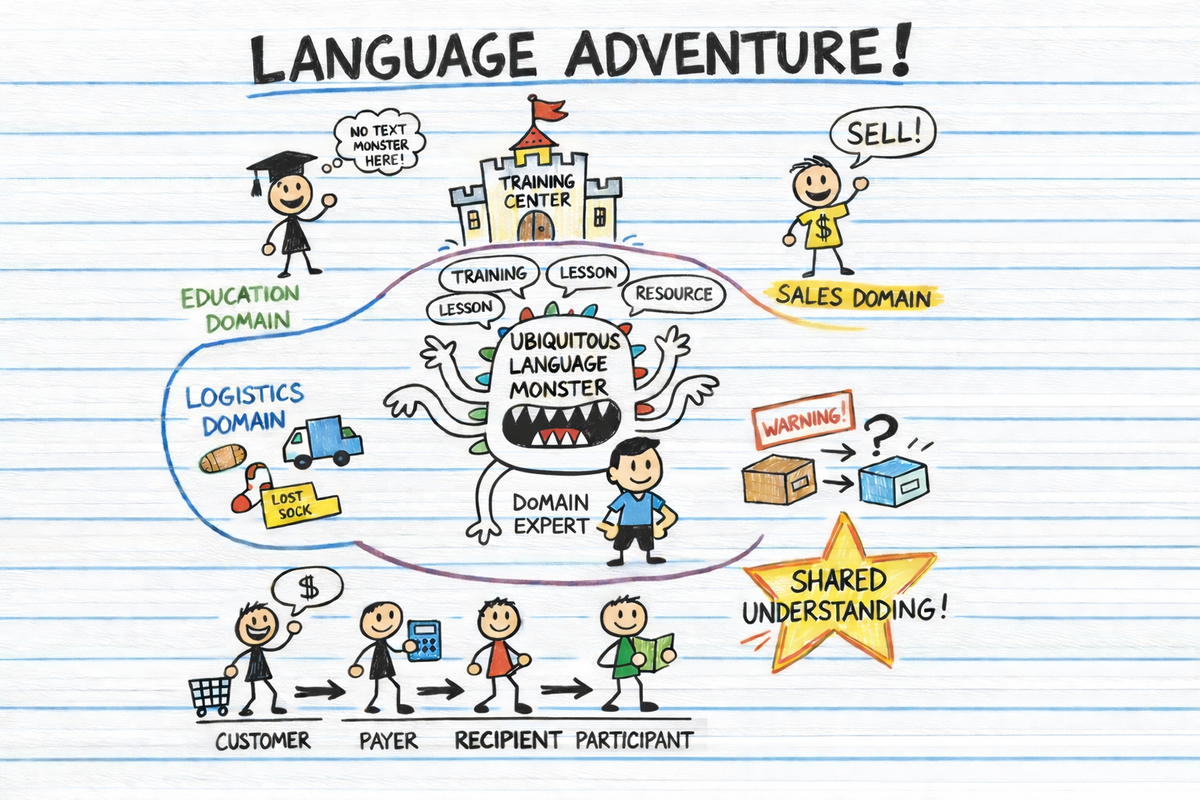 LANGUAGE ADVENTURE!
NO TEXT
MONSTER
HERE!
TRAINING
CENTER
SELL!
$
EDUCATION
DOMAIN
SALES DOMAIN
TRAINING
LESSON
LESSON
RESOURCE
UBIQUITOUS
LANGUAGE
MONSTER
LOGISTICS
DOMAIN
LOST
SOCK
DOMAIN
EXPERT
WARNING!
?
SHARED
UNDERSTANDING!
$
CUSTOMER
PAYER
RECIPIENT
PARTICIPANT